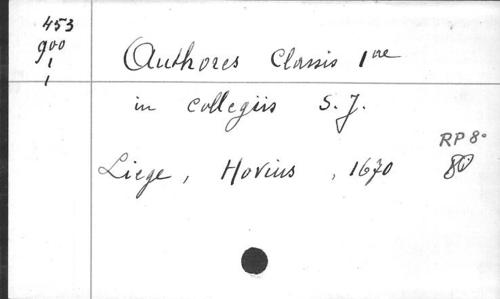 453
900
1
1
Authores Classis 1ae
in collegiis S. J.
Liege, Hovius, 1670
RP 8°